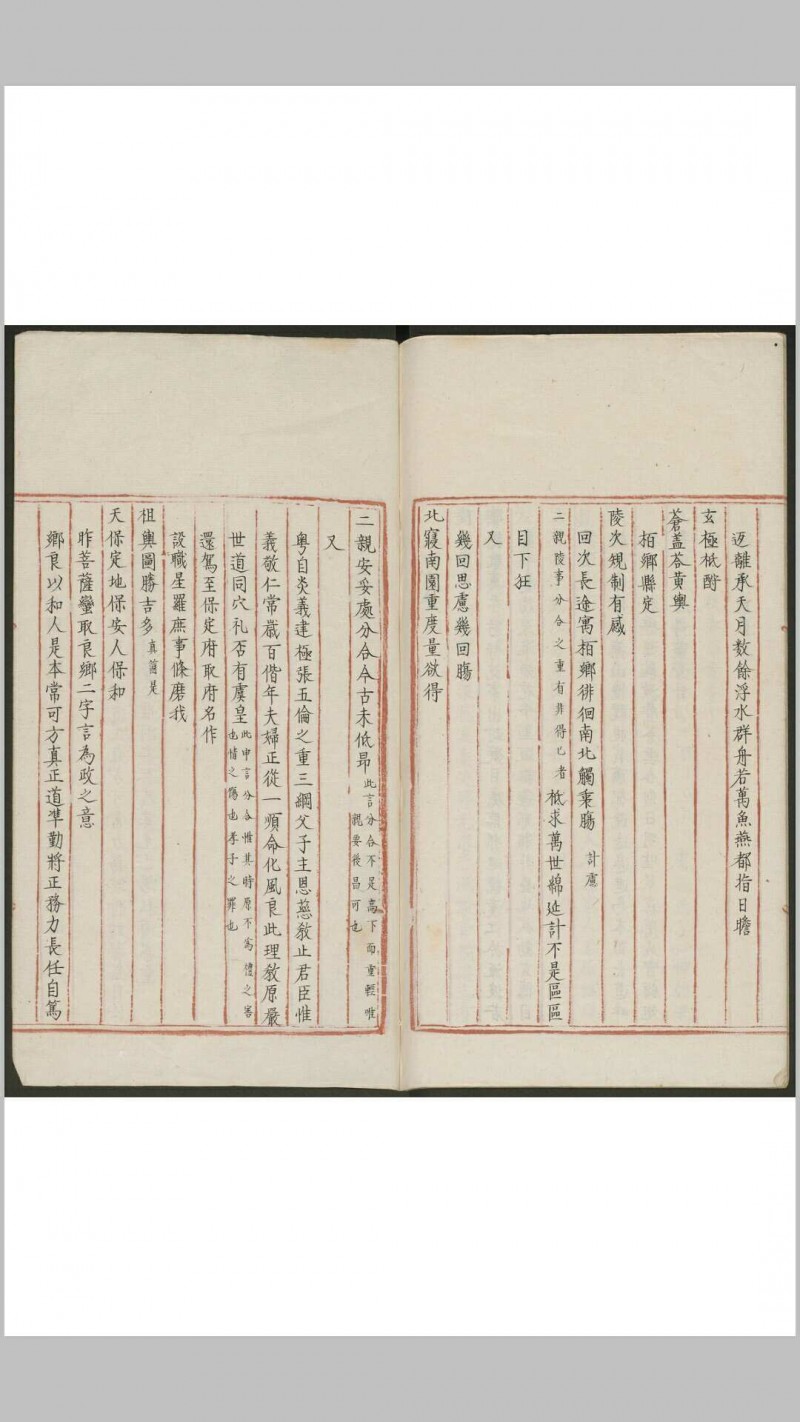 迈離承天月数餘浮水群舟若萬魚燕都指日瞻
玄極柢酧
蒼盖荅黄輿
栢鄉縣定
陵次䂓制有感
回次長途寓栢鄉徘徊南北觸棗膓計慮
二親陵事分合之重有非得已者柢求萬世綿延計不是區區
目下狂
又
幾回思慮幾回膓
北寢南園重度量欲得
二親安妥處分合今古未低昂此言分合不足高下而重輕唯
親要後昌可也
又
粤自炎義建極張五倫之重三綱父子主恩慈敎止君臣惟
義敬仁常歲百偕年夫婦正從一順命化風良此理敎原嚴
世道同穴礼否有虞皇此申言分合惟其時原不為禮之害
也情之傷也孝子之罪也
還駕至保定府取府名作
設職星羅庶事條磨我
祖輿圖勝吉多真箇是
天保定地保安人保和
昨菩薩蠻取良鄉二字言為政之意
鄉良以和人是本常可方真正道凖勤將正務力長任自篤